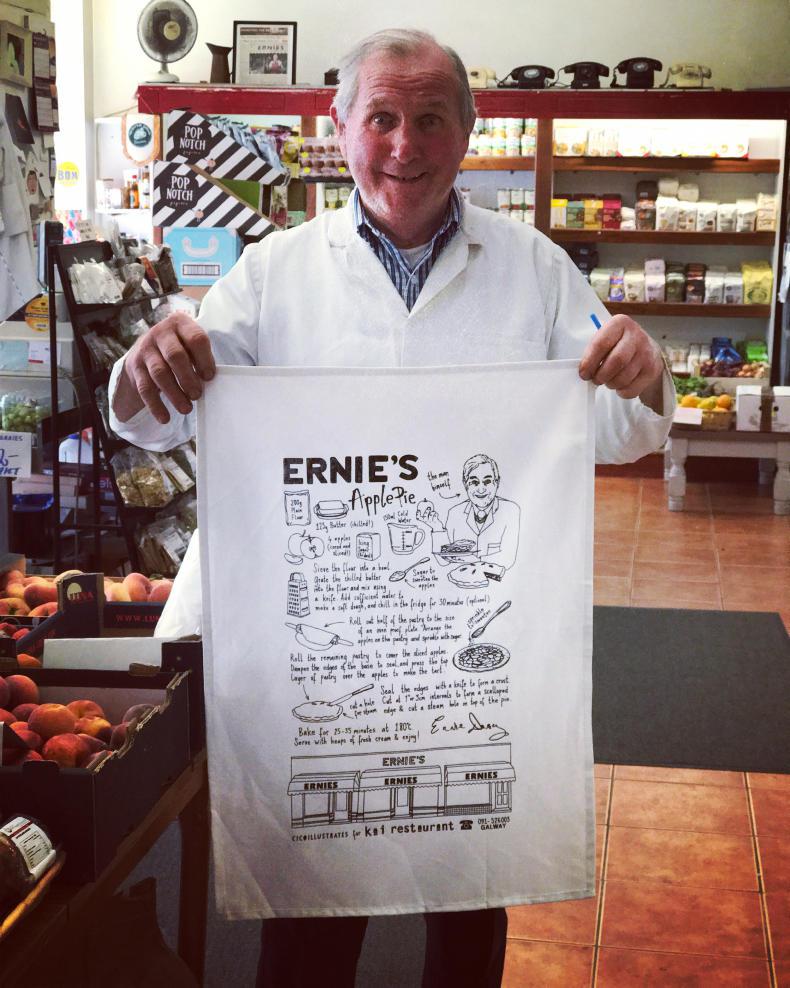 ERNIE'S
POP
NOTCH
POP
NOTCH
BOM
ERNIE'S
Apple Pie
the man
himself
200g
Plain
Flour
125g Butter (chilled!)
150ml Cold
Water
4 apples
(cored and
sliced!)
Icing
Sugar to
sweeten the
apples
Sieve the flour into a bowl
Grate the chilled butter
into the flour and mix using
a knife. Add sufficient water to
make a soft dough, and chill in the fridge for 30 minutes (optional)
Roll out half of the pastry to the size
of an oven proof plate. Arrange the
apples on the pastry and sprinkle with sugar.
sprinkle
to sweeten
Roll the remaining pastry to cover the sliced apples.
Dampen the edges of the base to seal and press the top
layer of pastry over the apples to make the tart.
cut a hole
for steam
Seal the edges with a knife to form a crust.
Cut at 1"-3cm intervals to form a scalloped
edge & cut a steam hole in top of the pie.
Bake for 25-35 minutes at 180°c
Serve with heaps of fresh cream & enjoy!
ERNIE'S
ERNIES
ERNIES
ERNIES
CICOILLUSTRATES for kai restaurant
091-526003
GALWAY